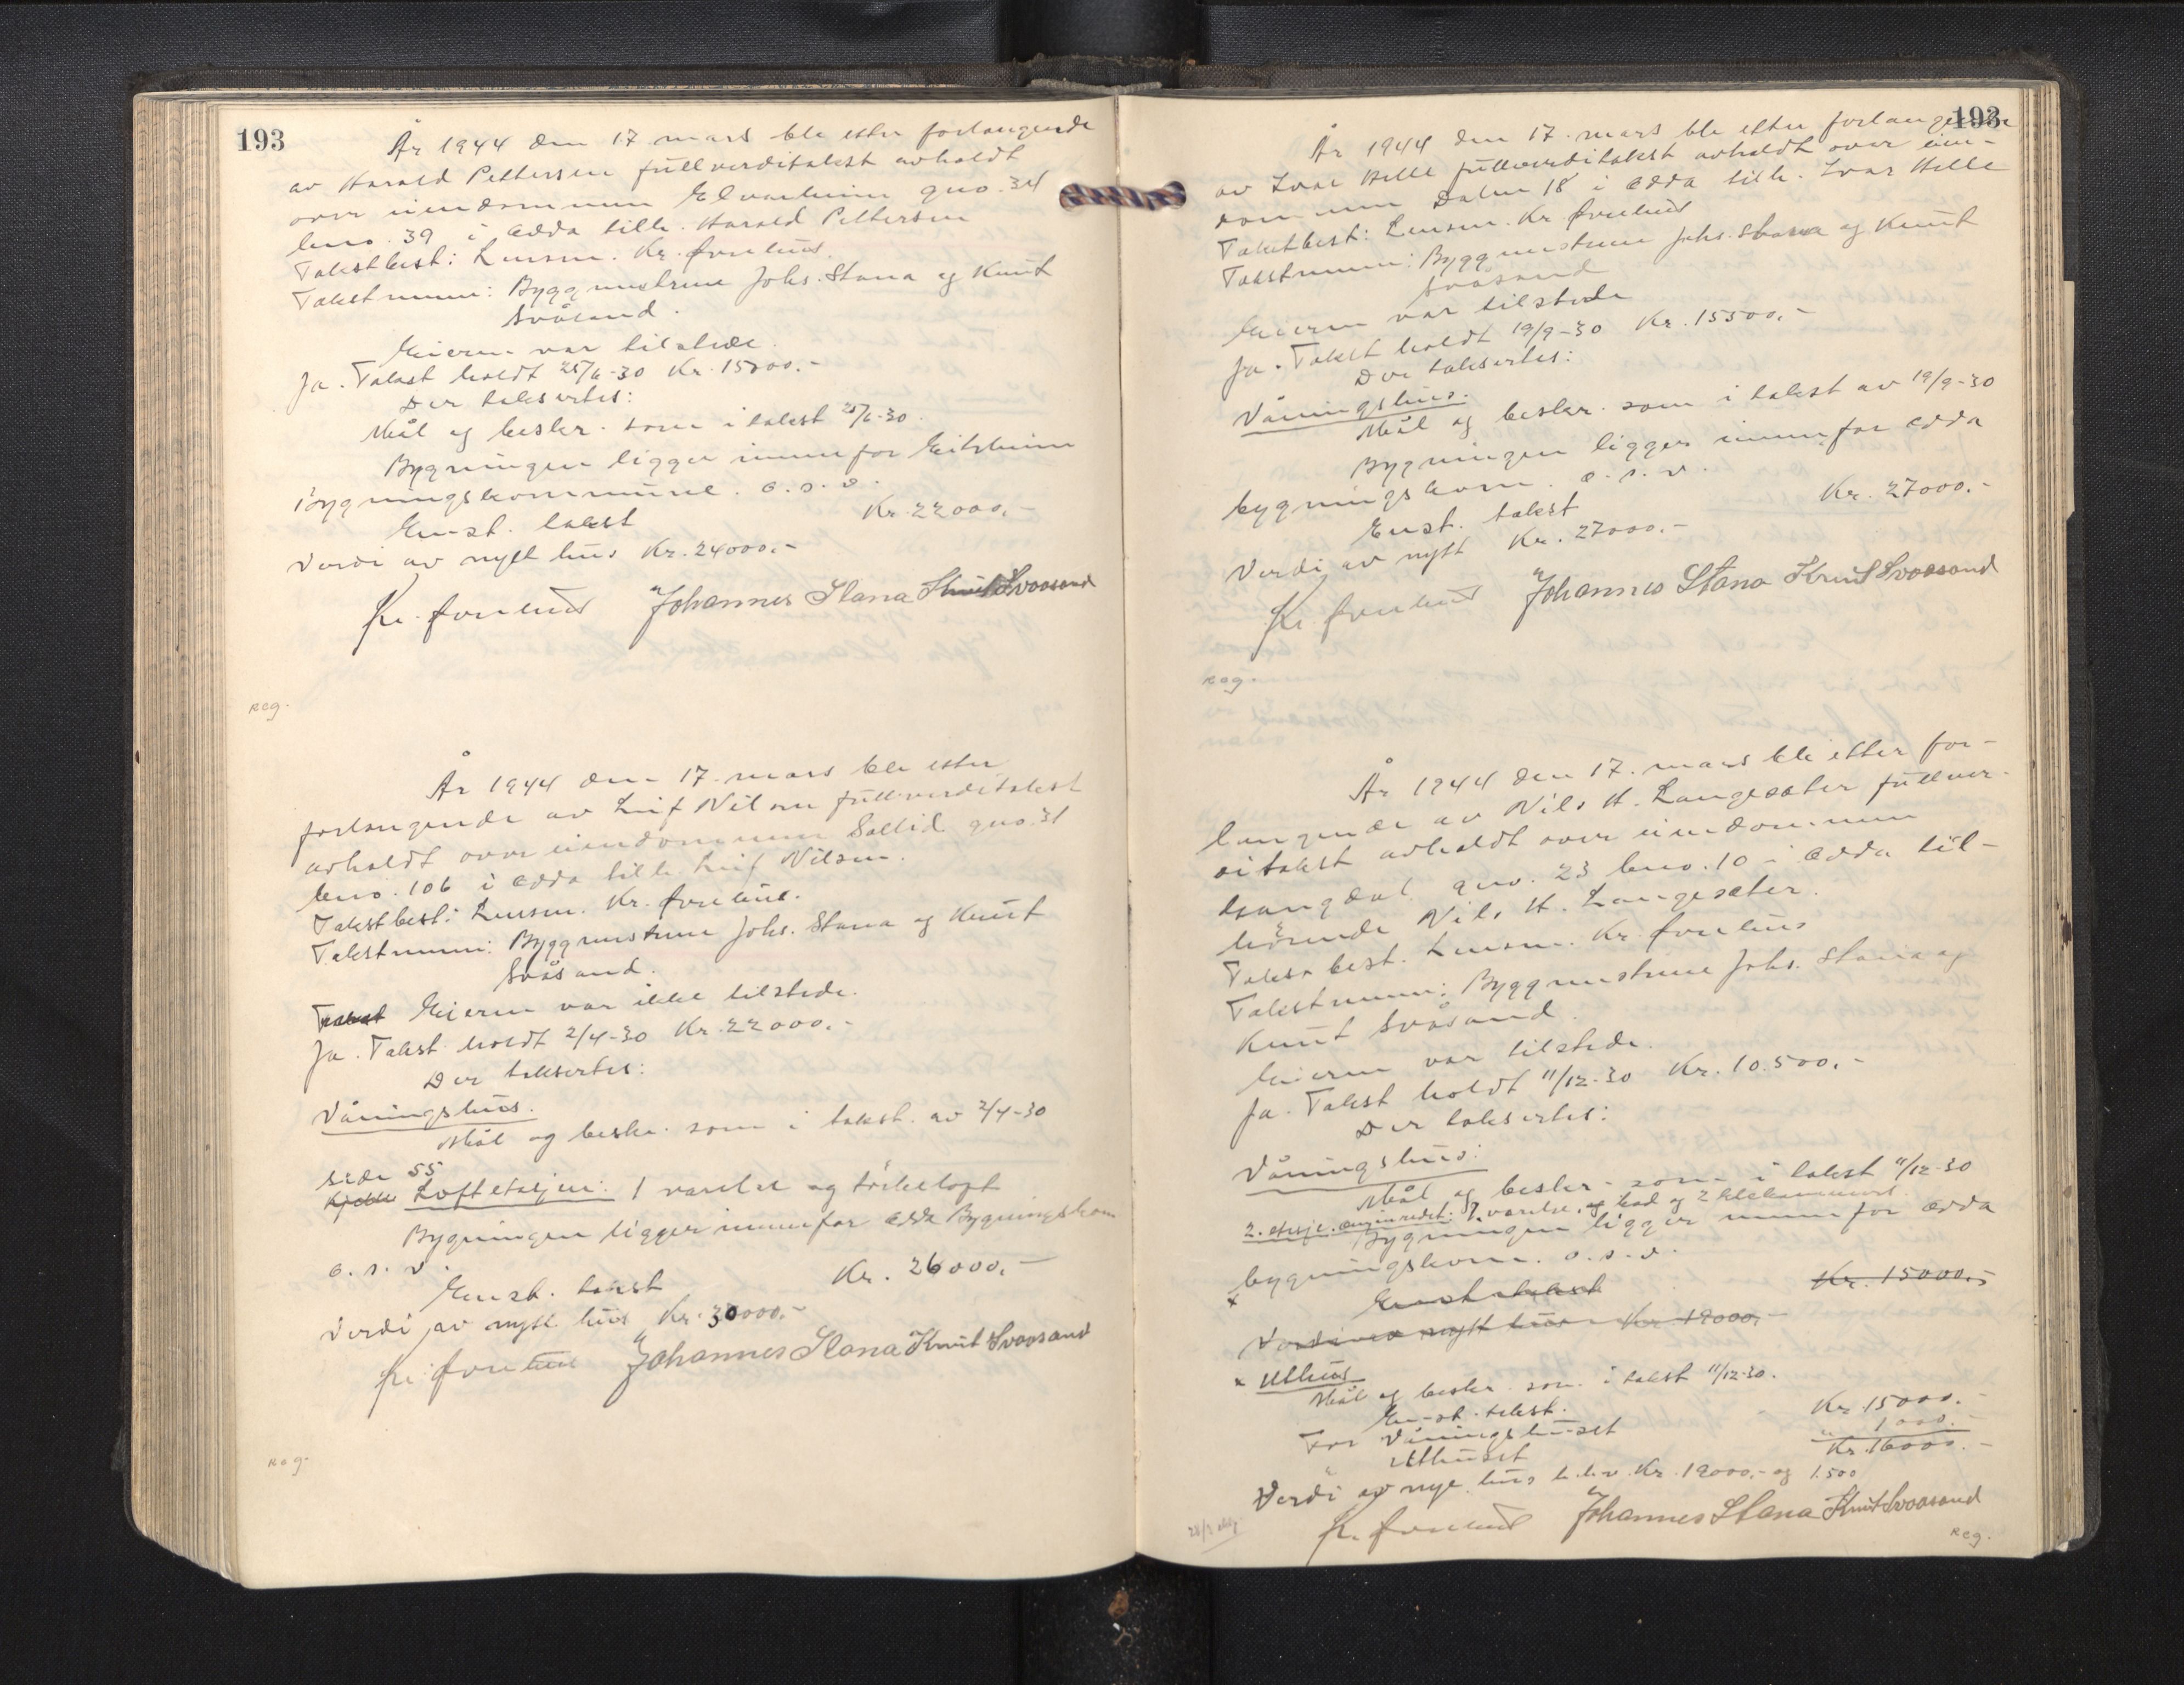 193
År 1944 den 17. mars ble etter forlangende
av Harald Pettersen fullverditakst avholdt
over eiendommen Elvarheim gno. 34
bno. 39 i Odda tilh. Harald Pettersen
Takstbest: Lensm. Kr. Øvrehus.
Takstmenn: Byggmestrene Johs. Stana og Knut
Svåsand.
Eieren var tilstede.
Ja. Takst holdt 25/6-30 Kr. 15000.-
Der taksertes:
Mål og beskr. som i takst 25/6-30.
Bygningen ligger innenfor Eitrheim
Bygningskommune. o.s.v.
Enst. takst Kr. 22000,-
Verdi av nytt hus Kr. 24000.-
Kr. Øvrehus Johannes Stana Knut Svaasand
Reg.
År 1944 den 17. mars ble etter
forlangende av Leif Nilsen fullverditakst
avholdt over eiendommen Sollid gno. 31
bno. 106 i Odda tilh. Leif Nilsen.
Takstbest: Lensm. Kr. Øvrehus.
Takstmenn: Byggmestrene Johs. Stana og Knut
Svåsand.
Takst Eieren var ikke tilstede.
Ja. Takst holdt 2/4-30 Kr. 22000.-
Der taksertes:
Våningshus.
Mål og beskr. som i takst. av 2/4-30
side 55
Kjeller Loftetasjen: 1 værelse og tørkeloft
Bygningen ligger innenfor Odda Bygningskom
o.s.v.
Enst. takst Kr. 26000.-
Verdi av nytt hus Kr. 30000.-
Kr. Øvrehus Johannes Stana Knut Svaasand
Reg.
193
År 1944 den 17. mars ble etter forlangende
av Ivar Helle fullverditakst avholdt over eien-
dommen Dalen 18 i Odda tilh. Ivar Helle
Takstbest: Lensm. Kr. Øvrehus
Takstmenn: Byggmestrene Johs. Stana og Knut
Svåsand
Eieren var tilstede
Ja. Takst holdt 19/9-30 Kr. 15500.-
Der taksertes:
Våningshus.
Mål og beskr. som i takst av 19/9-30
Bygningen ligger innenfor Odda
bygningskom. o.s.v.
Enst. takst Kr. 27000.-
Verdi av nytt Kr. 27000.-
Kr. Øvrehus Johannes Stana Knut Svaasand
Reg.
År 1944 den 17. mars ble etter for-
langende av Nils H. Langesæter fullver-
ditakst avholdt over eiendommen
gno. 23 bno. 10 i Odda til-
hørende Nils H. Langesæter.
Takstbest. Lensm. Kr. Øvrehus
Takstmenn: Byggmestrene Johs. Stana og
Knut Svåsand.
Eieren var tilstede.
Ja. Takst holdt 11/12-30 Kr. 10.500.-
Der taksertes:
Våningshus:
Mål og beskr. som i takst 11/12-30
2. etasje. værelse, og bad og 2
Bygningen ligger innenfor Odda
bygningskom. o.s.v.
x Enst. takst Kr. 15000.-
Verdi av nytt hus Kr. 19000.-
x Uthus
Mål og beskr. som i takst 11/12-30.
Enst. takst.
For Våningshuset Kr. 15000.-
Uthuset " 1000.-
Kr. 16000.-
Verdi av nye hus h.h.v. Kr. 19000.- og 1.500
Kr. Øvrehus Johannes Stana Knut Svaasand
Reg.